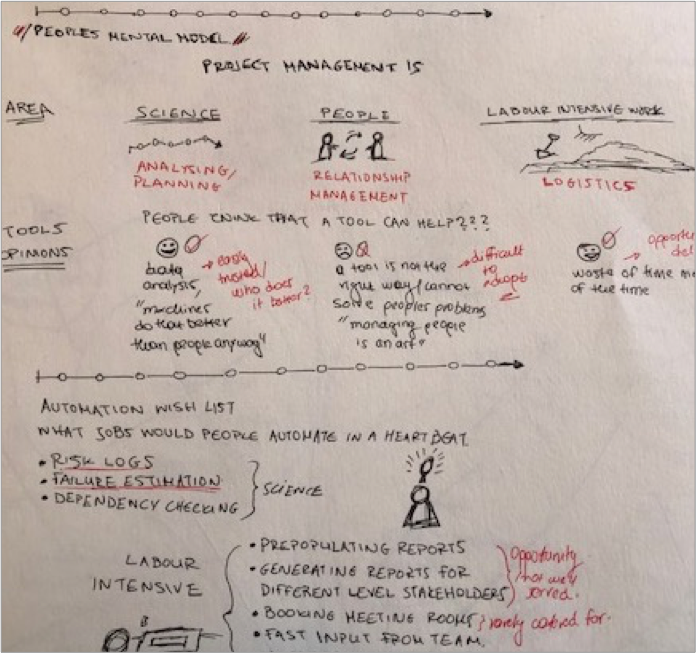 PEOPLES MENTAL MODEL
PROJECT MANAGEMENT IS
AREA
SCIENCE
PEOPLE
LABOUR INTENSIVE WORK
ANALYSING/
PLANNING
RELATIONSHIP
MANAGEMENT
LOGISTICS
TOOLS
OPINIONS
PEOPLE THINK THAT A TOOL CAN HELP???
data
analysis,
"machines
do that better
than people anyway"
→ easily
trusted/
who does
it better?
a tool is not the
right way/cannot
solve peoples problems
"managing people
is an art"
→ difficult
to
adopt
waste of time
of the time
AUTOMATION WISH LIST
WHAT JOBS WOULD PEOPLE AUTOMATE IN A HEARTBEAT
• RISK LOGS
• FAILURE ESTIMATION
• DEPENDENCY CHECKING
SCIENCE
LABOUR
INTENSIVE
• PREPOPULATING REPORTS
• GENERATING REPORTS FOR
DIFFERENT LEVEL STAKEHOLDERS
• BOOKING MEETING ROOMS
• FAST INPUT FROM TEAM.
opportunity
/not well
served.
rarely catered for.